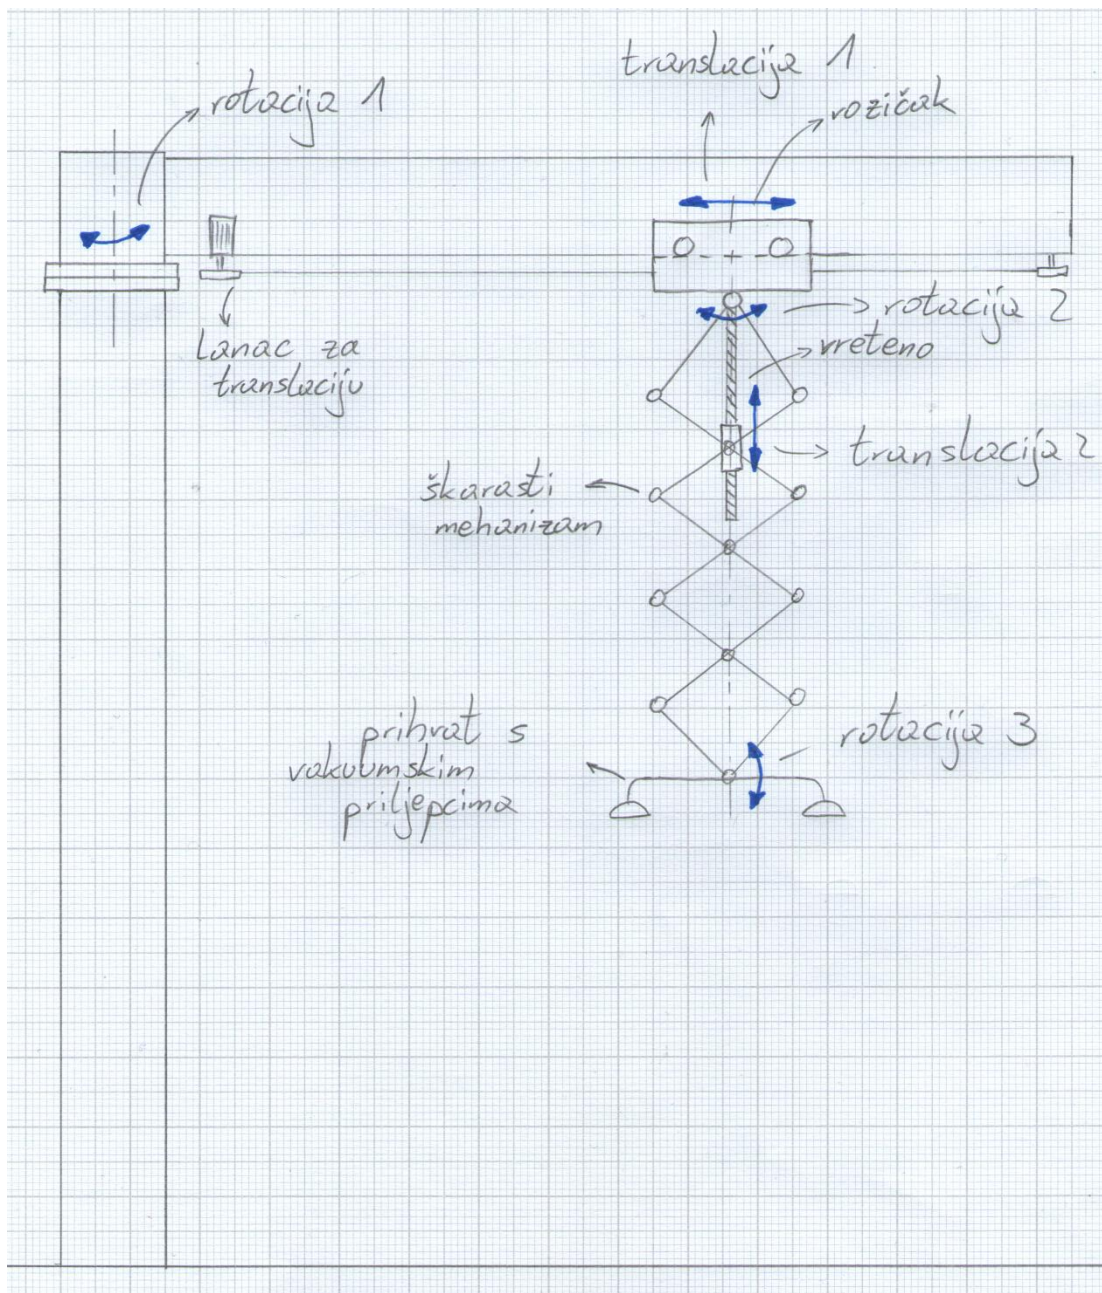 translacija 1
rotacija 1
rozičak
rotacija 2
lanac za
translaciju
vreteno
translacija 2
škarasti
mehanizam
prihvat s
vakuumskim
priljepcima
rotacija 3